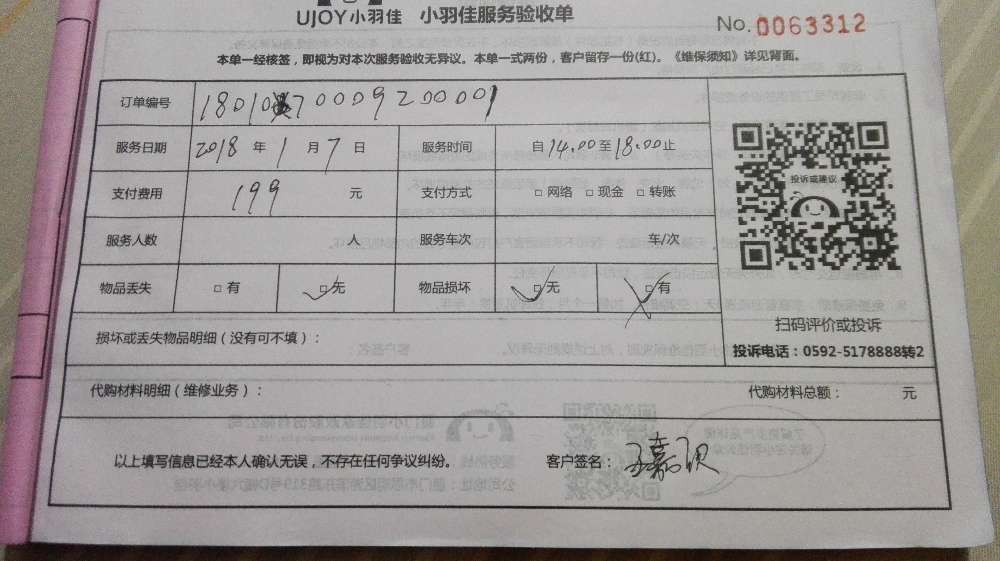 UJOY小羽佳 小羽佳服务验收单
No. 0063312
本单一经核签，即视为对本次服务验收无异议。本单一式两份，客户留存一份(红)。《维保须知》详见背面。
订单编号 18010 700092 00001
服务日期 2018 年 1 月 7 日 服务时间 自 14.00 至 18.00 止
支付费用 199 元 支付方式 □ 网络 □ 现金 □ 转账
投诉或建议
服务人数 人 服务车次 车/次
物品丢失 □ 有 □ 无 物品损坏 □ 无 □ 有
损坏或丢失物品明细（没有可不填）：
扫码评价或投诉
投诉电话：0592-5178888转2
代购材料明细（维修业务）： 代购材料总额： 元
以上填写信息已经本人确认无误，不存在任何争议纠纷。 客户签名：